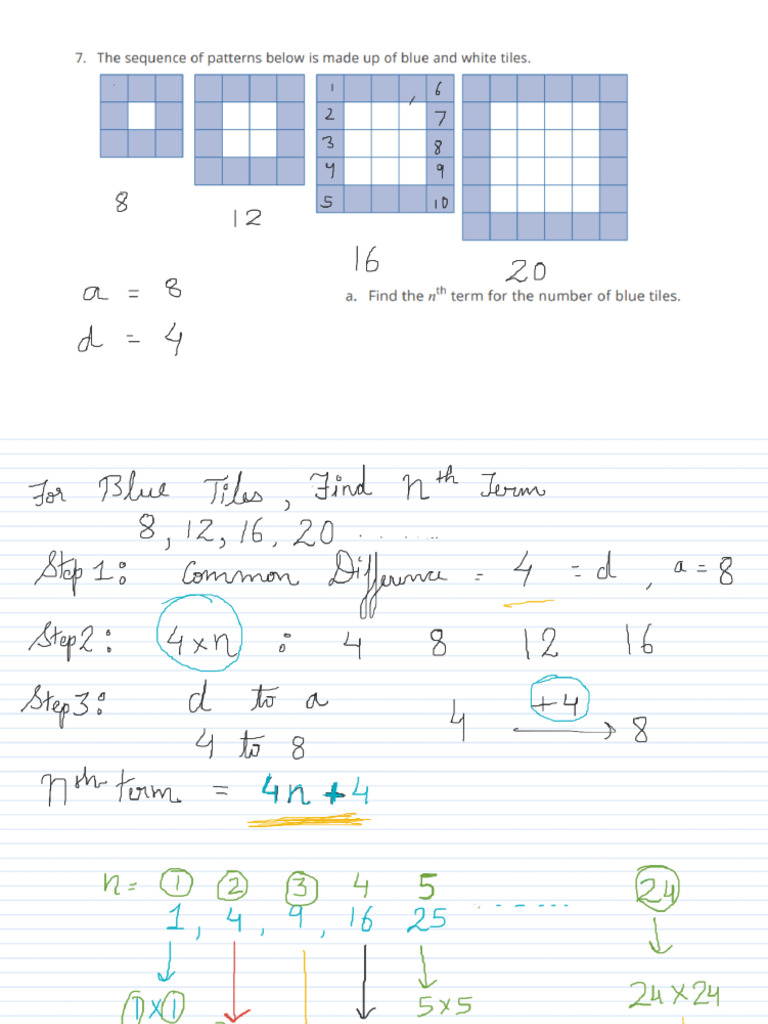 7. The sequence of patterns below is made up of blue and white tiles.
1 6
2 7
3 8
4 9
5 10
8
12
16
20
a = 8
a. Find the nth term for the number of blue tiles.
d = 4
For Blue Tiles, Find nth Term
8, 12, 16, 20 ........
Step 1: Common Difference = 4 = d, a = 8
Step 2: 4×n : 4 8 12 16
Step 3: d to a 4 +4 → 8
4 to 8
nth term = 4n + 4
n = 1 2 3 4 5 24
1, 4, 9, 16 25 ......
1×1 5×5 24×24